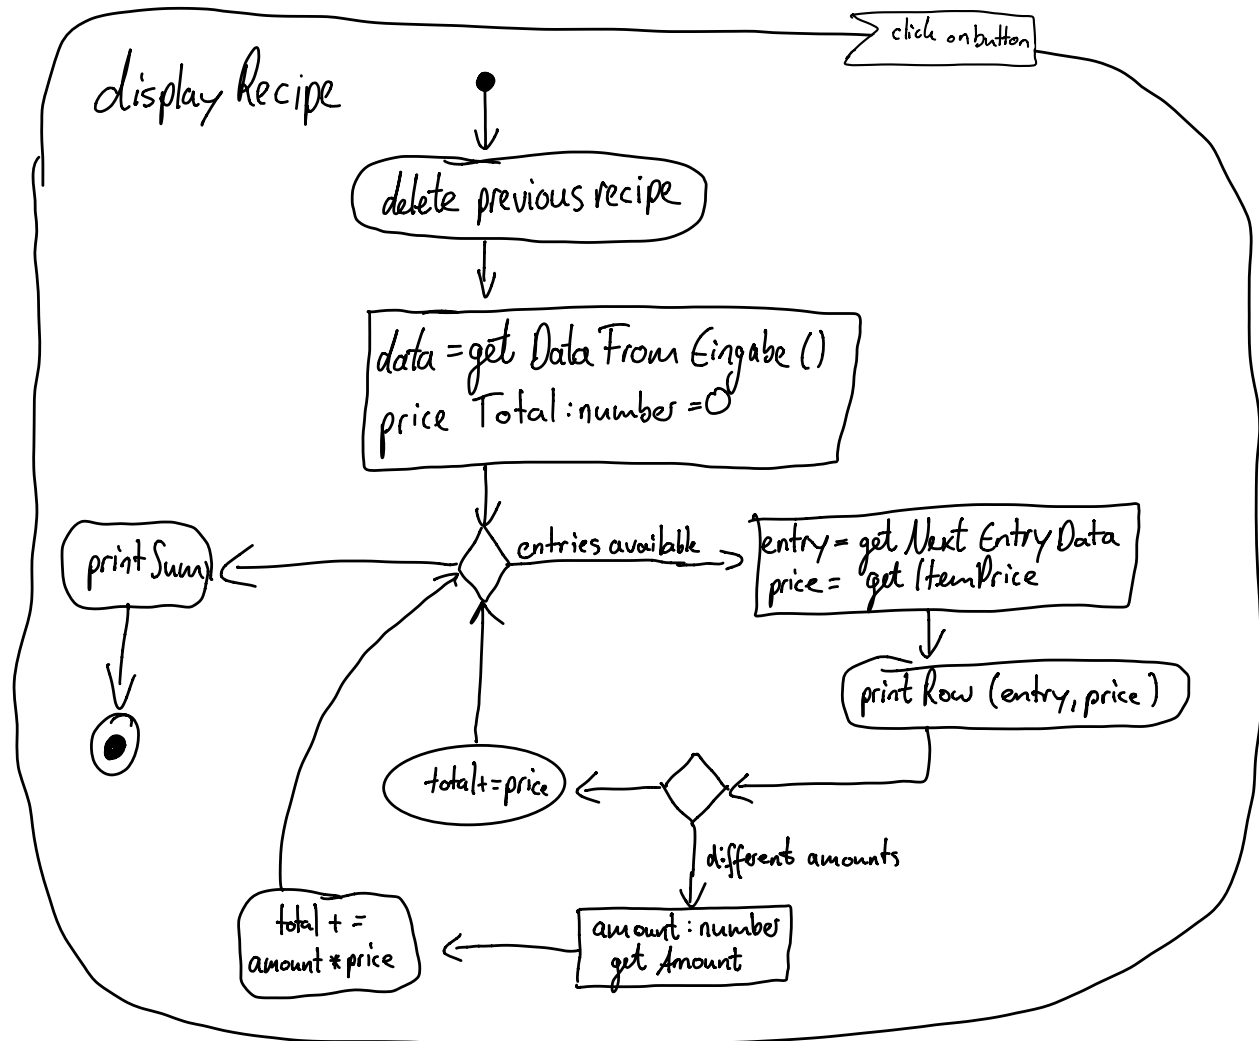 click on button
display Recipe
delete previous recipe
data = get Data From Eingabe ()
price Total : number = 0
print Sum
entries available
entry = get Next Entry Data
price = get Item Price
print Row (entry, price)
total += price
different amounts
total + =
amount * price
amount : number
get Amount